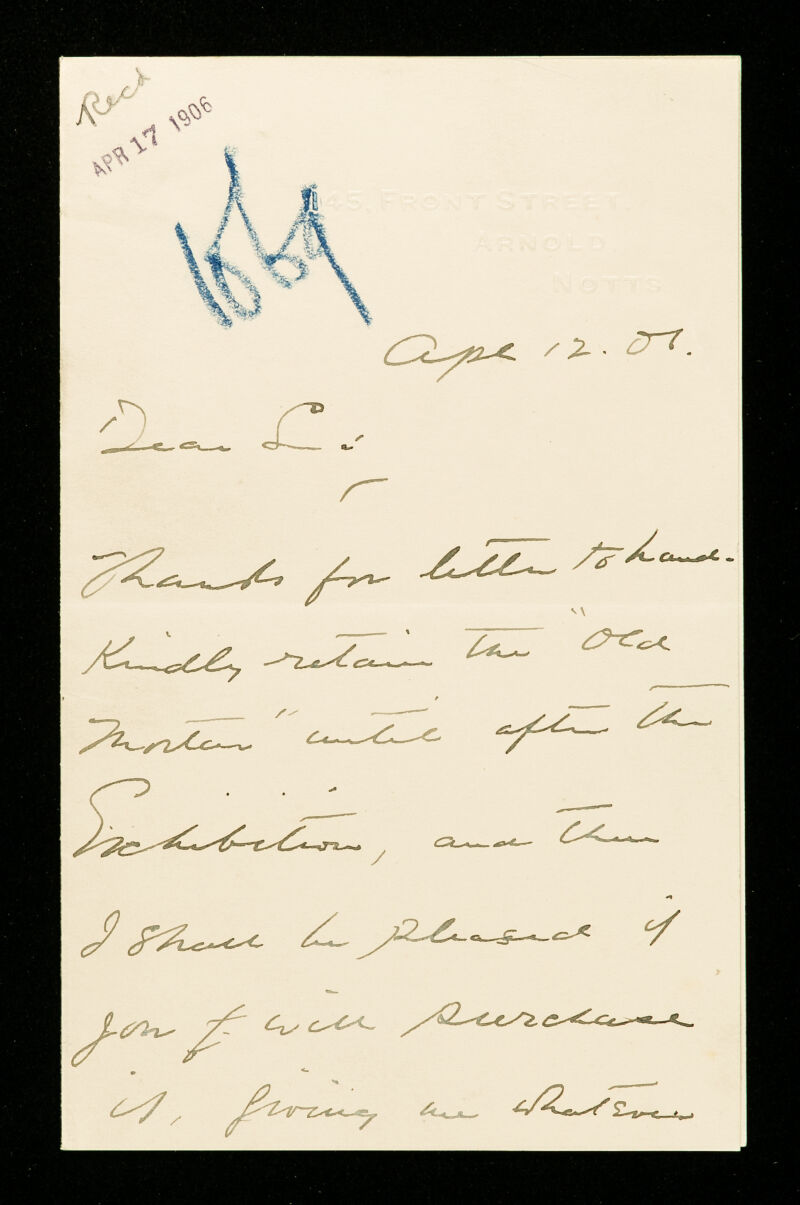 Recd
APR 17 1906
1069
45, FRONT STREET,
ARNOLD
NOTTS
Apl 12. 06.
Dear Sir:
Thanks for letter to hand.
Kindly retain the "Old
Mortar" until after the
Exhibition, and then
I shall be pleased if
you will purchase
it, giving me whatever